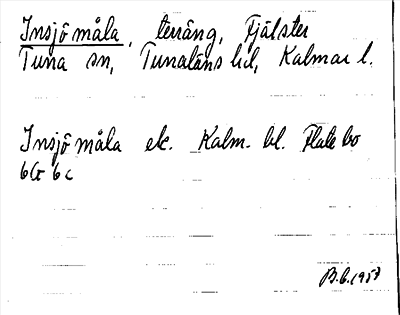 Insjömåla, terräng, Fjälster
Tuna sn, Tunaläns hd, Kalmar l.
Insjömåla ek. Kalm. bl. Flatebo
6G 6c
B.b. 1957